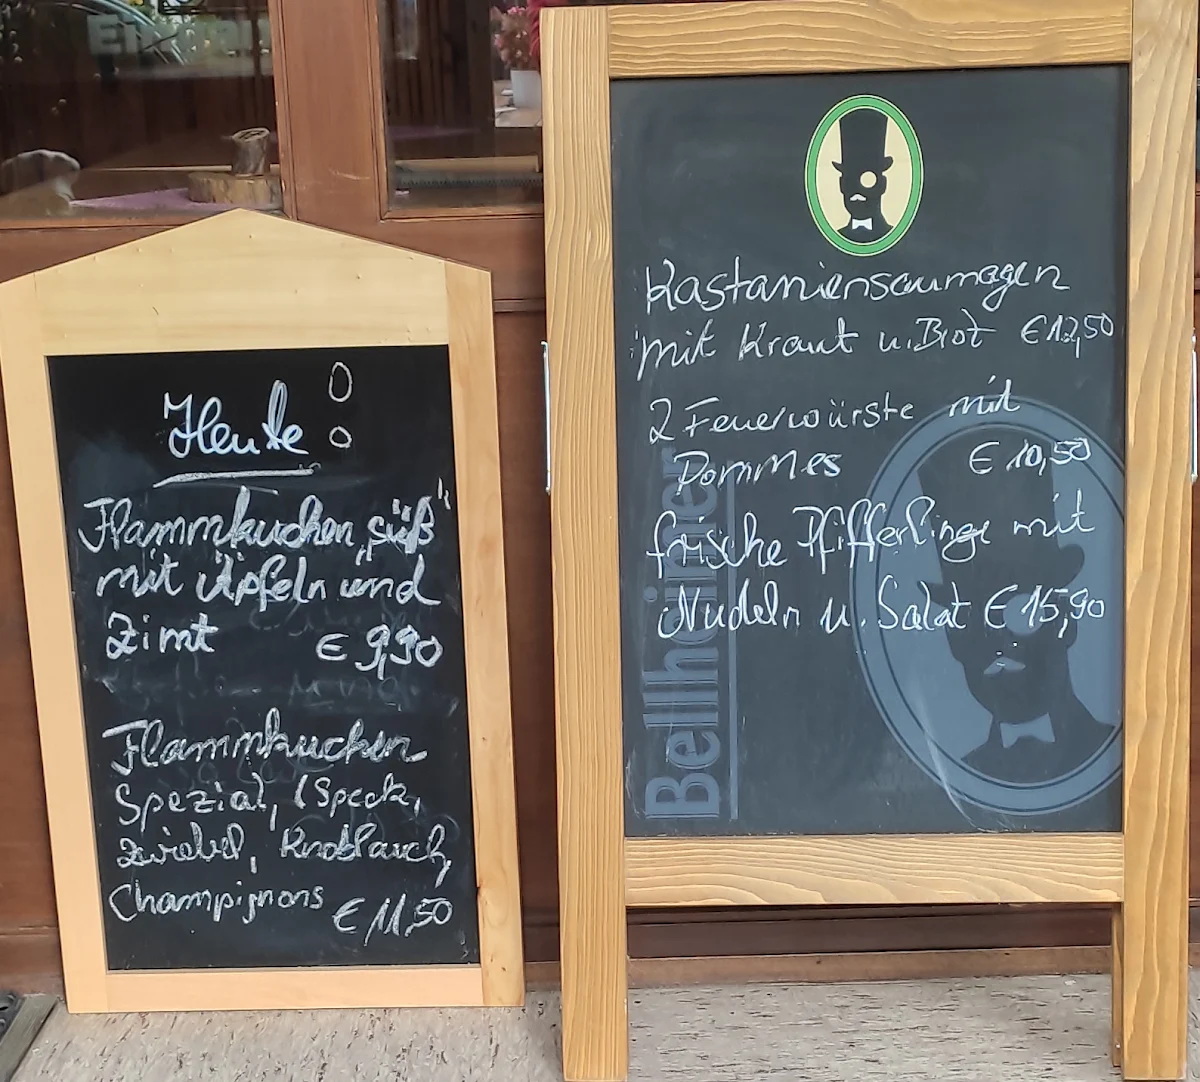 Heute
Flammkuchen "süß"
mit Äpfeln und
Zimt € 9,90
Flammkuchen
Spezial, (Speck,
Zwiebel, Knoblauch,
Champignons € 11,50
Kastaniensaumagen
mit Kraut u. Brot € 12,50
2 Feuerwürste mit
Pommes € 10,50
frische Pfifferlinge mit
Nudeln u. Salat € 15,90
Bellheimer